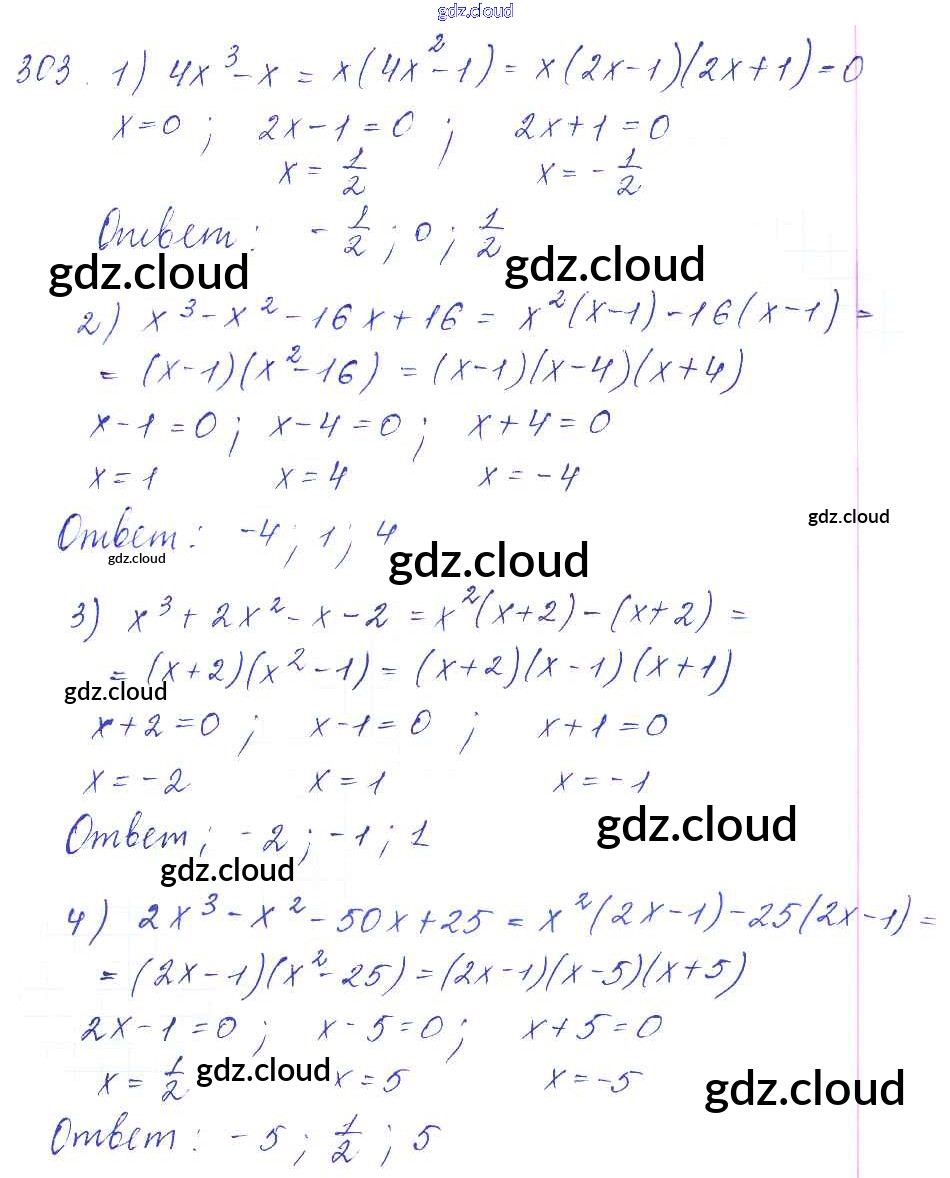 gdz.cloud
303. 1) 4x³-x = x(4x²-1) = x(2x-1)(2x+1)=0
x=0 ; 2x-1=0 ; 2x+1=0
x = 1/2 x = -1/2
Ответ: -1/2 ; 0 ; 1/2
gdz.cloud gdz.cloud
2) x³-x²-16x+16 = x²(x-1)-16(x-1) =
= (x-1)(x²-16) = (x-1)(x-4)(x+4)
x-1=0 ; x-4=0 ; x+4=0
x=1 x=4 x=-4
gdz.cloud
Ответ: -4 ; 1 ; 4
gdz.cloud gdz.cloud
3) x³+2x²-x-2 = x²(x+2)-(x+2) =
= (x+2)(x²-1) = (x+2)(x-1)(x+1)
gdz.cloud
x+2=0 ; x-1=0 ; x+1=0
x=-2 x=1 x=-1
Ответ: -2 ; -1 ; 1
gdz.cloud
gdz.cloud
4) 2x³-x²-50x+25 = x²(2x-1)-25(2x-1) =
= (2x-1)(x²-25) = (2x-1)(x-5)(x+5)
2x-1=0 ; x-5=0 ; x+5=0
x = 1/2 gdz.cloud x=5 x=-5
gdz.cloud
Ответ: -5 ; 1/2 ; 5